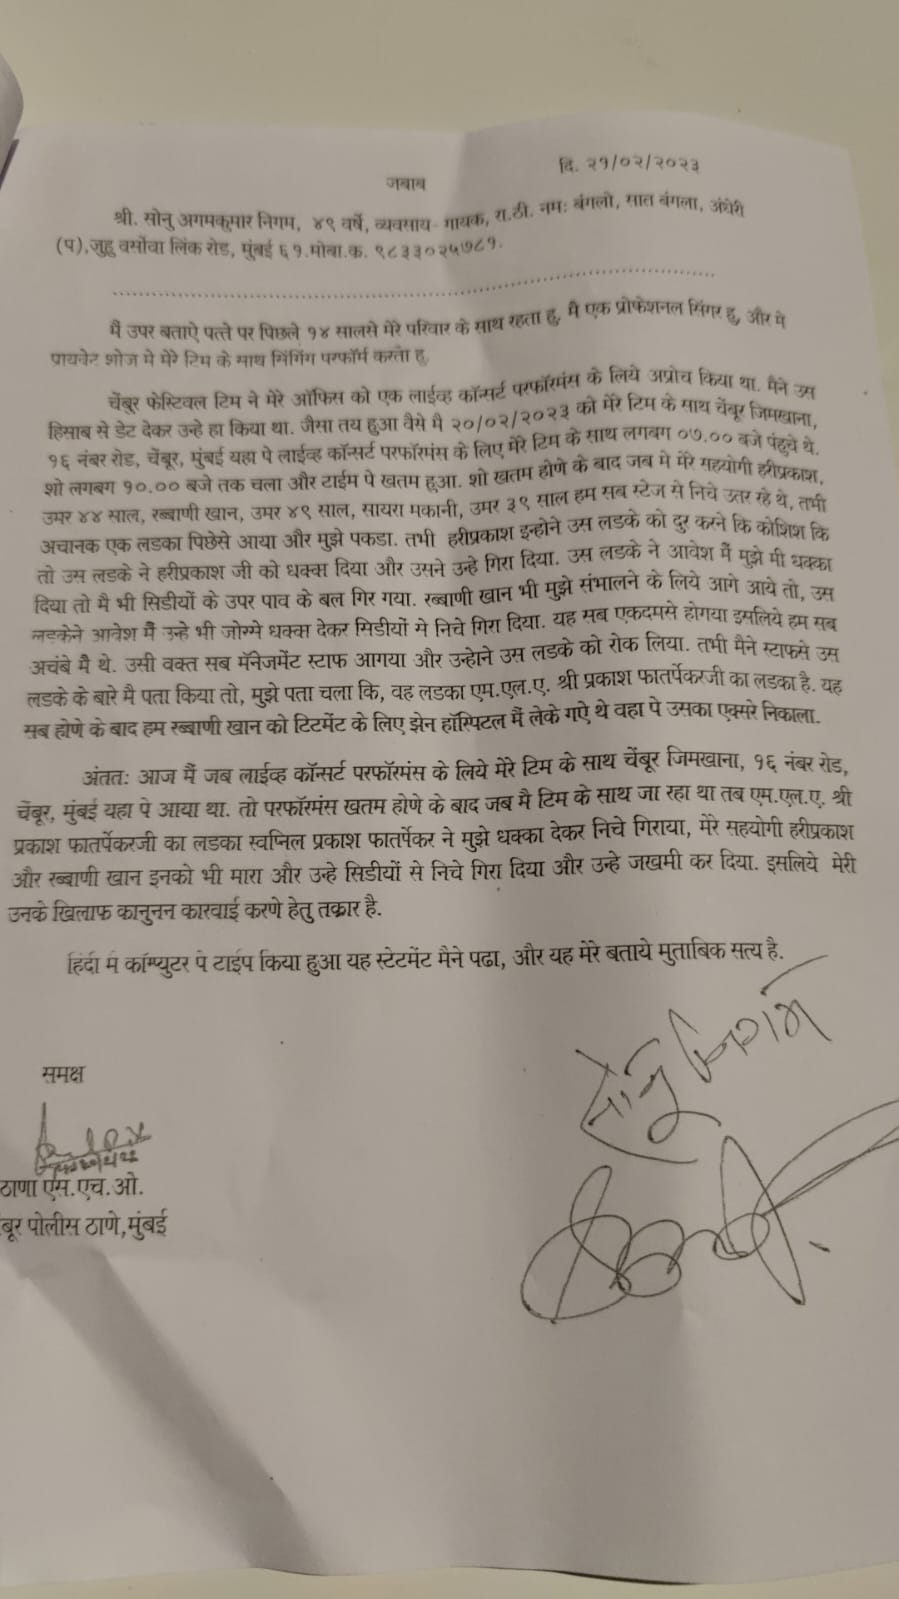 दि. २१/०२/२०२३
जबाब
श्री. सोनु अगमकुमार निगम, ४९ वर्षे, व्यवसाय- गायक, रा.ठी. नमः बंगलो, सात बंगला, अंधेरी
(प),जुहु वर्सोवा लिंक रोड, मुंबई ६१.मोबा.क. ९८३३०२५७८१.
मैं उपर बताऐ पत्ते पर पिछले १४ सालसे मेरे परिवार के साथ रहता हु. मै एक प्रोफेशनल सिंगर हु, और मे
प्रायवेट शोज मे मेरे टिम के साथ सिंगिंग परफॉर्म करता हु.
चेंबुर फेस्टिवल टिम ने मेरे ऑफिस को एक लाईव्ह कॉन्सर्ट परफॉरमंस के लिये अप्रोच किया था. मैने उस
हिसाब से डेट देकर उन्हे हा किया था. जैसा तय हुआ वैसे मै २०/०२/२०२३ को मेरे टिम के साथ चेंबूर जिमखाना,
१६ नंबर रोड, चेंबूर, मुंबई यहा पे लाईव्ह कॉन्सर्ट परफॉरमंस के लिए मेरे टिम के साथ लगबग ०७.०० बजे पंहुचे थे.
शो लगबग १०.०० बजे तक चला और टाईम पे खतम हुआ. शो खतम होने के बाद जब मे मेरे सहयोगी हरीप्रकाश,
उमर ४४ साल, रब्बाणी खान, उमर ४९ साल, सायरा मकानी, उमर ३९ साल हम सब स्टेज से निचे उतर रहे थे, तभी
अचानक एक लडका पिछेसे आया और मुझे पकडा. तभी हरीप्रकाश इन्होने उस लडके को दुर करने कि कोशिश कि
तो उस लडके ने हरीप्रकाश जी को धक्का दिया और उसने उन्हे गिरा दिया. उस लडके ने आवेश मैं मुझे मी धक्का
दिया तो मै भी सिडीयों के उपर पाव के बल गिर गया. रब्बाणी खान भी मुझे संभालने के लिये आगे आये तो, उस
लडकेने आवेश मैं उन्हे भी जोरसे धक्का देकर सिडीयों से निचे गिरा दिया. यह सब एकदमसे होगया इसलिये हम सब
अचंबे मै थे. उसी वक्त सब मॅनेजमेंट स्टाफ आगया और उन्होने उस लडके को रोक लिया. तभी मैने स्टाफसे उस
लडके के बारे मै पता किया तो, मुझे पता चला कि, वह लडका एम.एल.ए. श्री प्रकाश फातर्पेकरजी का लडका है. यह
सब होणे के बाद हम रब्बाणी खान को टिटमेंट के लिए झेन हॉस्पिटल मैं लेके गऐ थे वहा पे उसका एक्सरे निकाला.
अंततः आज मैं जब लाईव्ह कॉन्सर्ट परफॉरमंस के लिये मेरे टिम के साथ चेंबूर जिमखाना, १६ नंबर रोड,
चेंबूर, मुंबई यहा पे आया था. तो परफॉरमंस खतम होणे के बाद जब मै टिम के साथ जा रहा था तब एम.एल.ए. श्री
प्रकाश फातर्पेकरजी का लडका स्वप्निल प्रकाश फातर्पेकर ने मुझे धक्का देकर निचे गिराया, मेरे सहयोगी हरीप्रकाश
और रब्बाणी खान इनको भी मारा और उन्हे सिडीयों से निचे गिरा दिया और उन्हे जखमी कर दिया. इसलिये मेरी
उनके खिलाफ कानुनन कारवाई करणे हेतु तक्रार है.
हिंदी मे कॉम्प्युटर पे टाईप किया हुआ यह स्टेटमेंट मैने पढा, और यह मेरे बताये मुताबिक सत्य है.
सोनु निगम
समक्ष
ठाणा एस.एच.ओ.
बूर पोलीस ठाणे,मुंबई